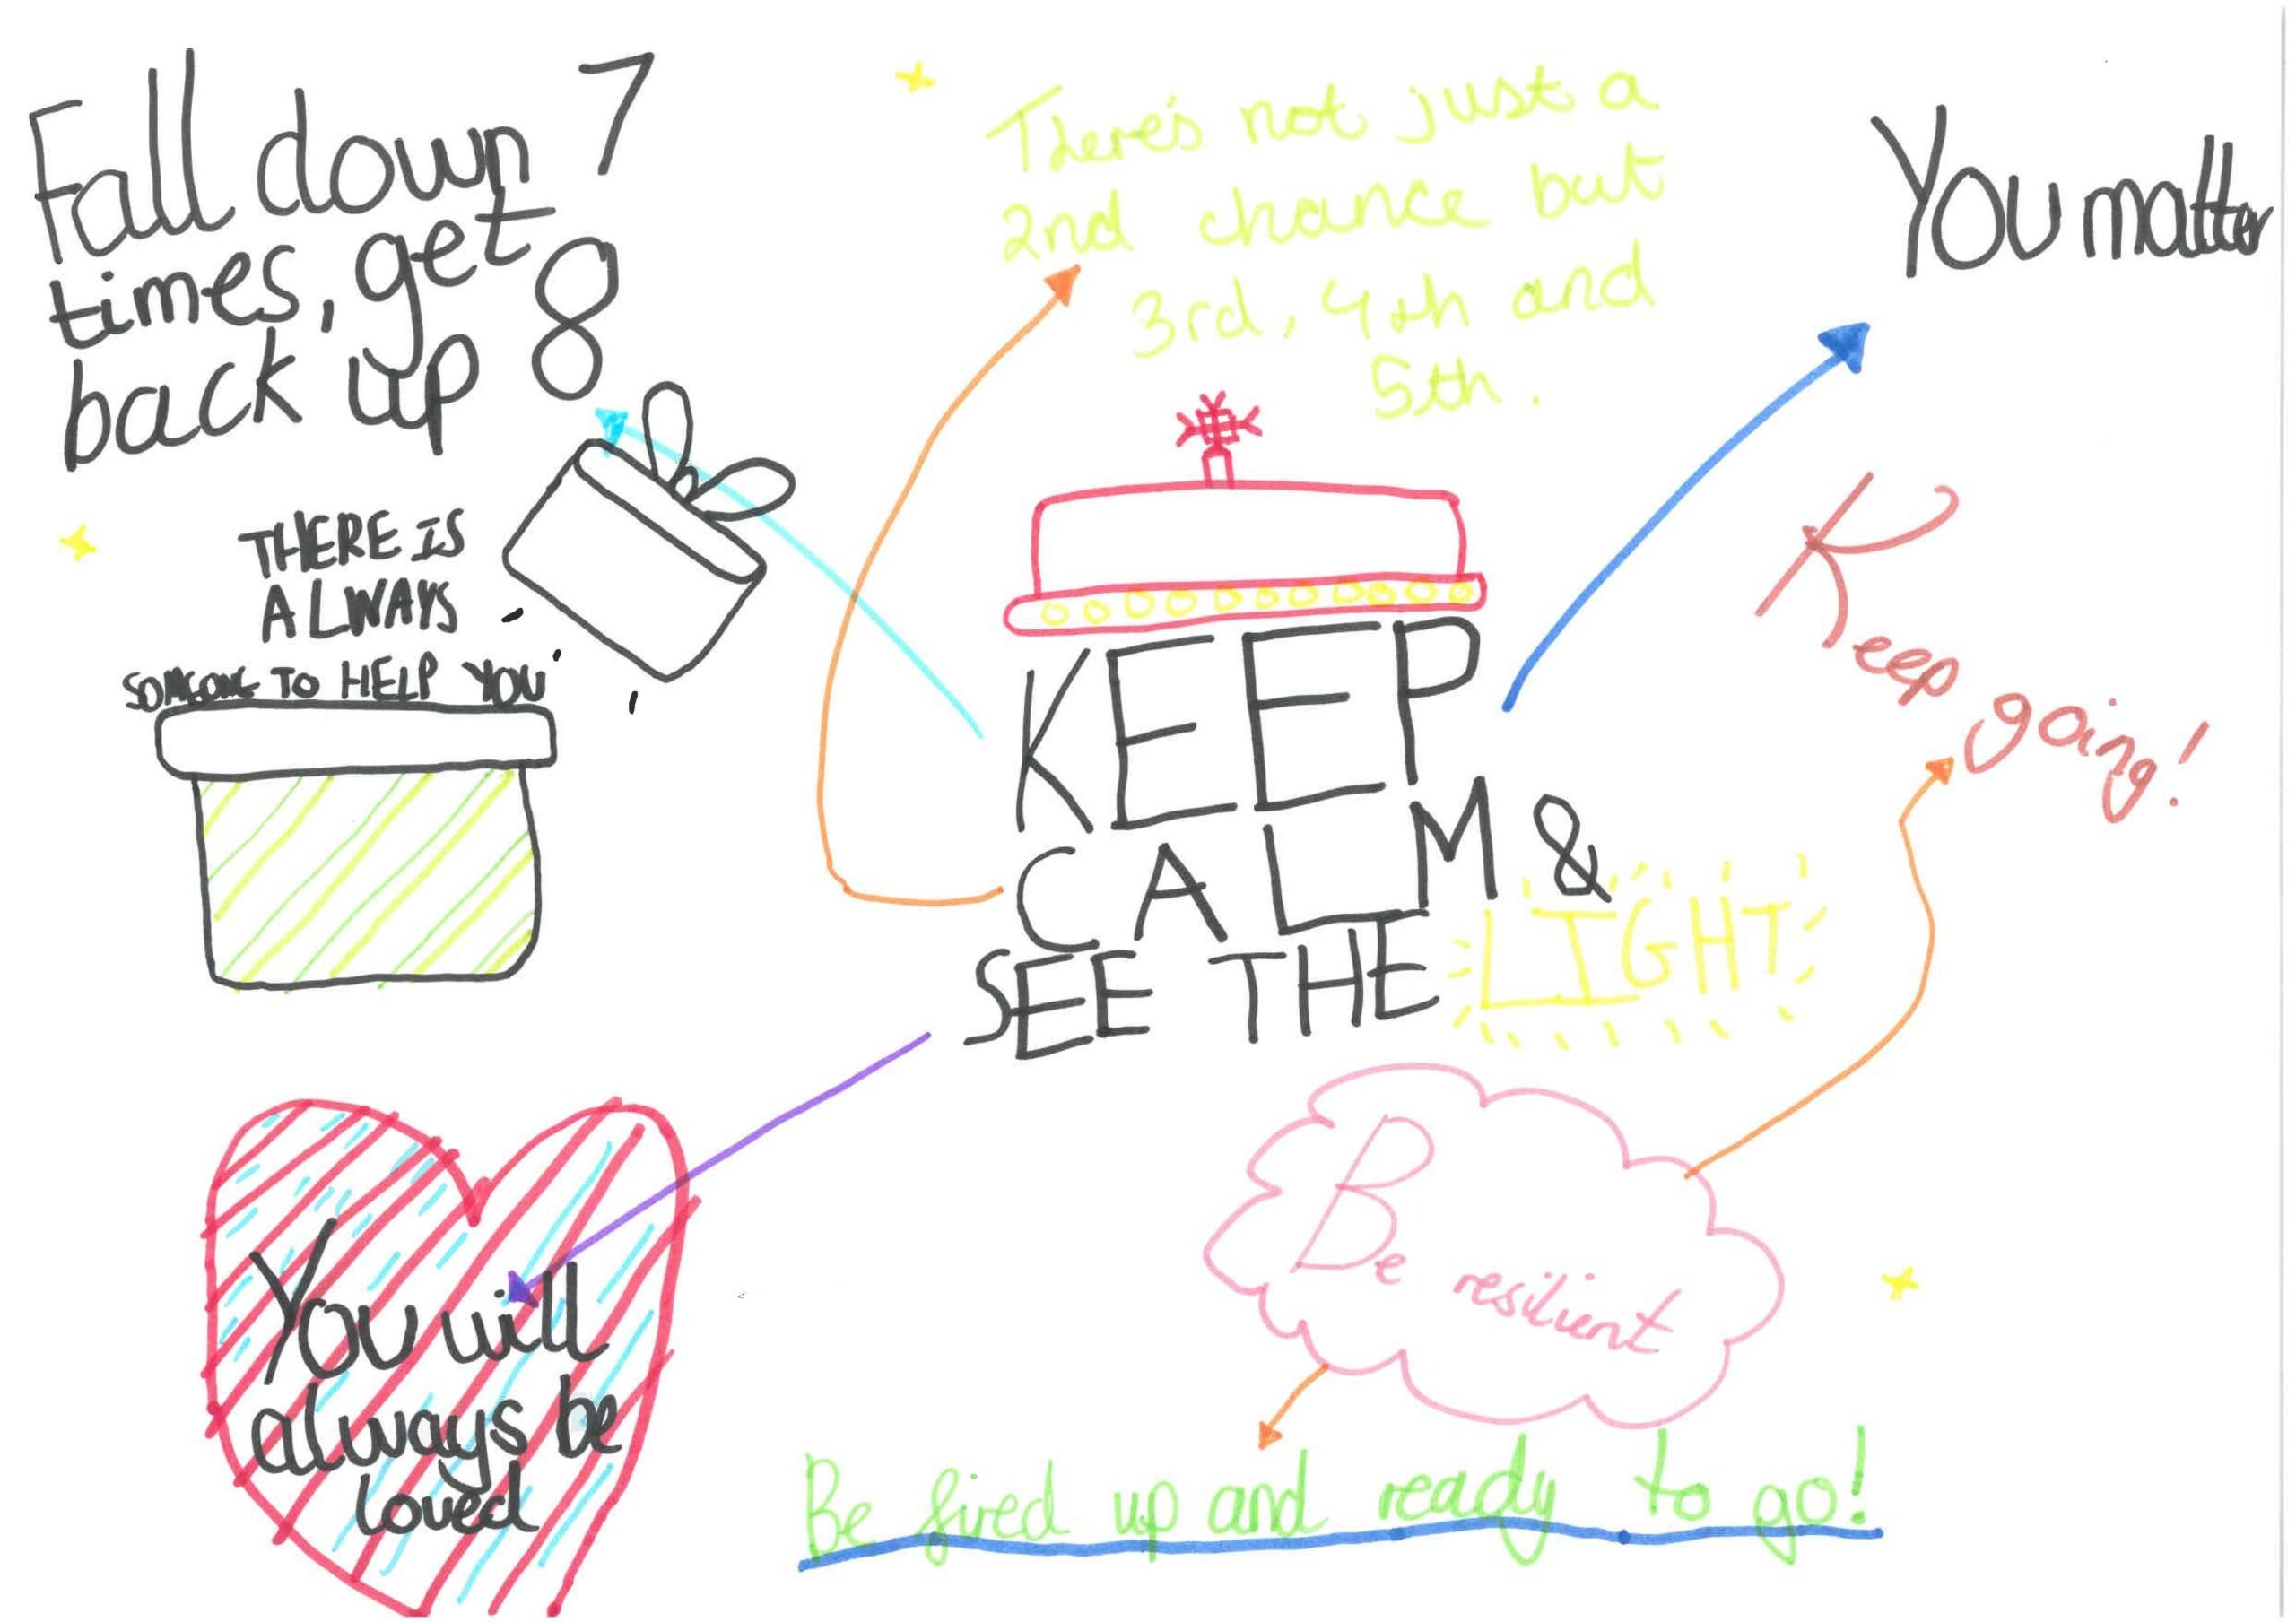 Fall down 7
times, get
back up 8
There's not just a
2nd chance but
3rd, 4th and
5th.
You matter
THERE IS
ALWAYS
SOMEONE TO HELP YOU
Keep going!
KEEP
CALM &
SEE THE LIGHT
You will
always be
loved
Be resilient
Be fired up and ready to go!